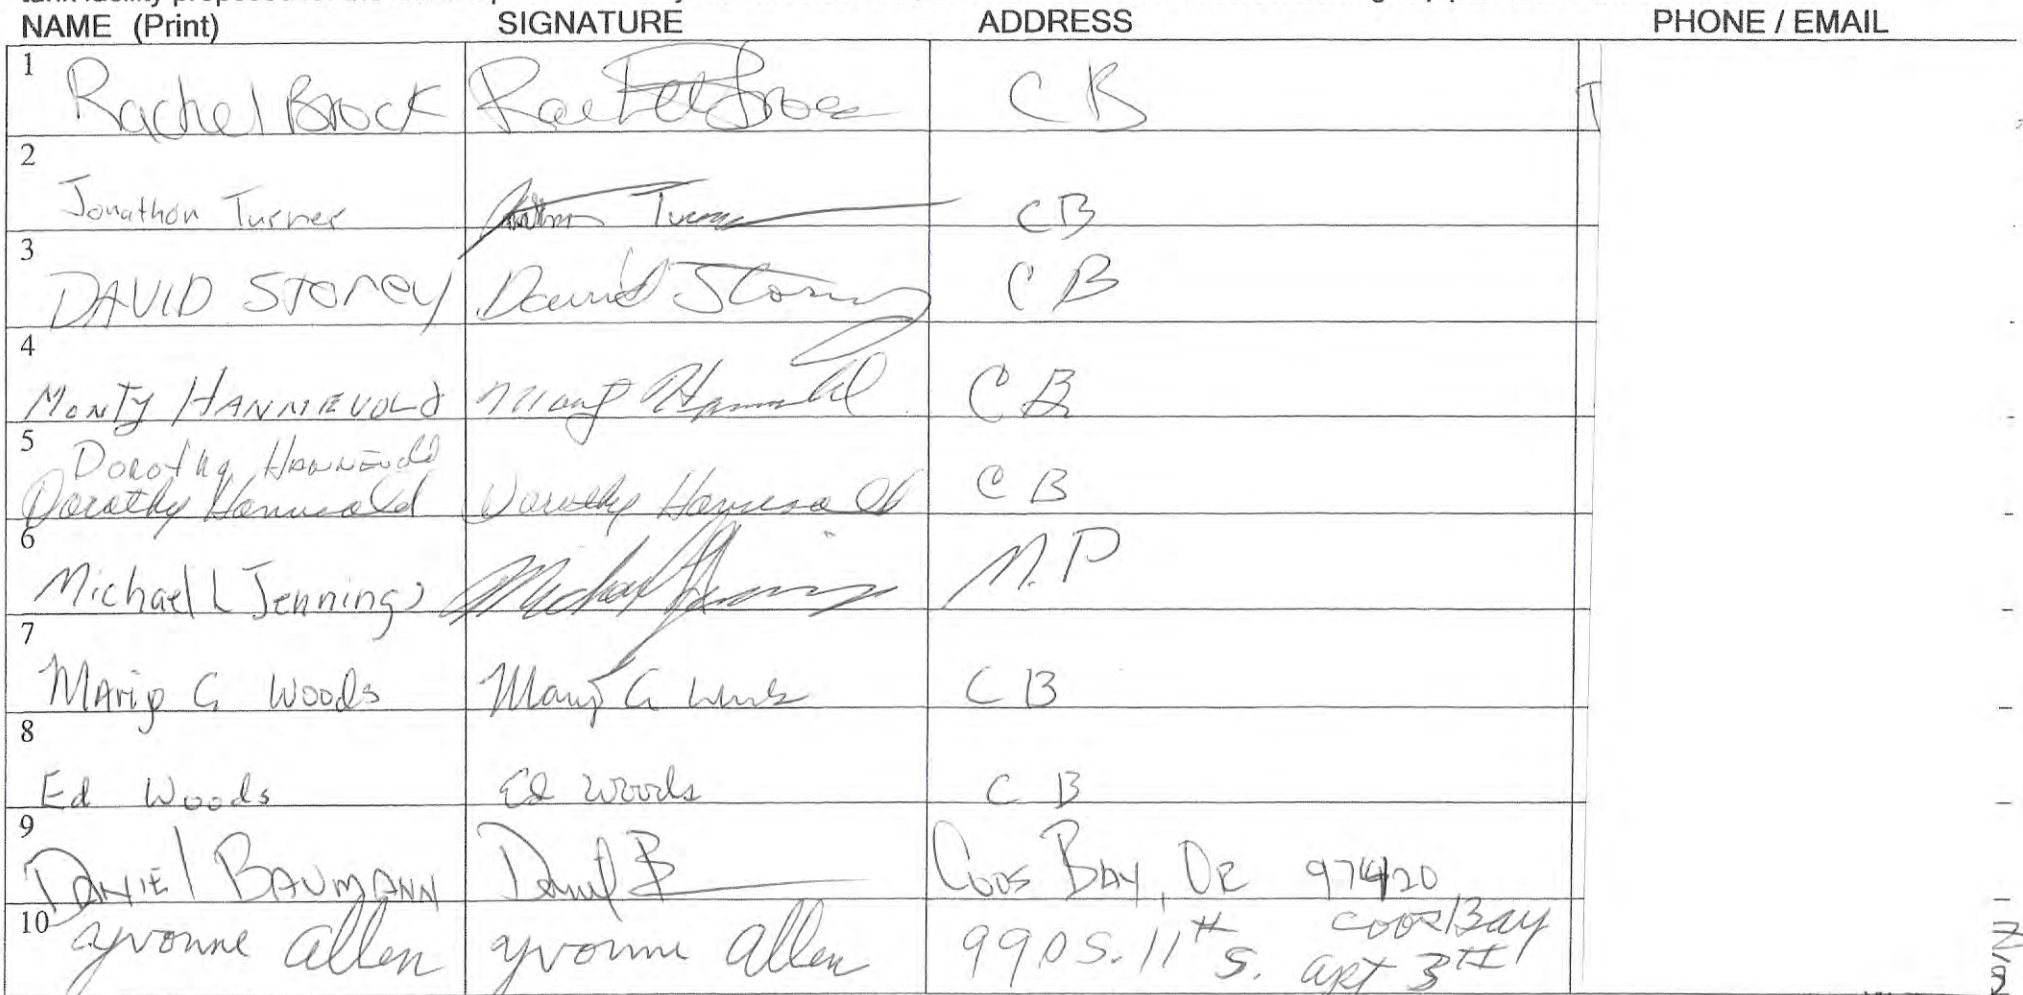 NAME (Print) SIGNATURE ADDRESS PHONE / EMAIL
1 Rachel Brock CB
2 Jonathon Turner Turner CB
3 DAVID STOREY David Storey CB
4 MONTY HANNEVOLD CB
5 Dorothy HANNEVOLD
Dorothy Hannevold Dorothy Hannevold CB
6 Michael L Jennings Michael Jennings N.P
7 C Woods CB
8 Ed Woods Ed Woods CB
9 DANIEL BAUMANN COOS BAY, OR 97420
10 yvonne allen yvonne allen 990 S. 11th S. Coos Bay
apt 3